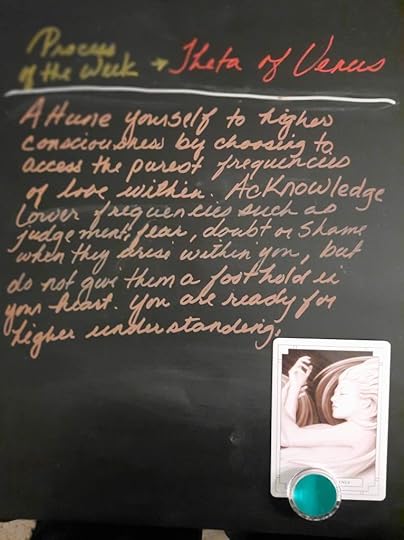 Process
of the Week → Theta of Venus
Attune yourself to higher
consciousness by choosing to
access the purest frequencies
of love within. Acknowledge
lower frequencies such as
judgement, fear, doubt or shame
when they arise within you, but
do not give them a foothold in
your heart. You are ready for
higher understanding.